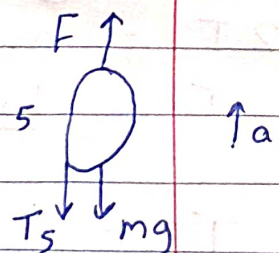 F
5
a
T5 mg